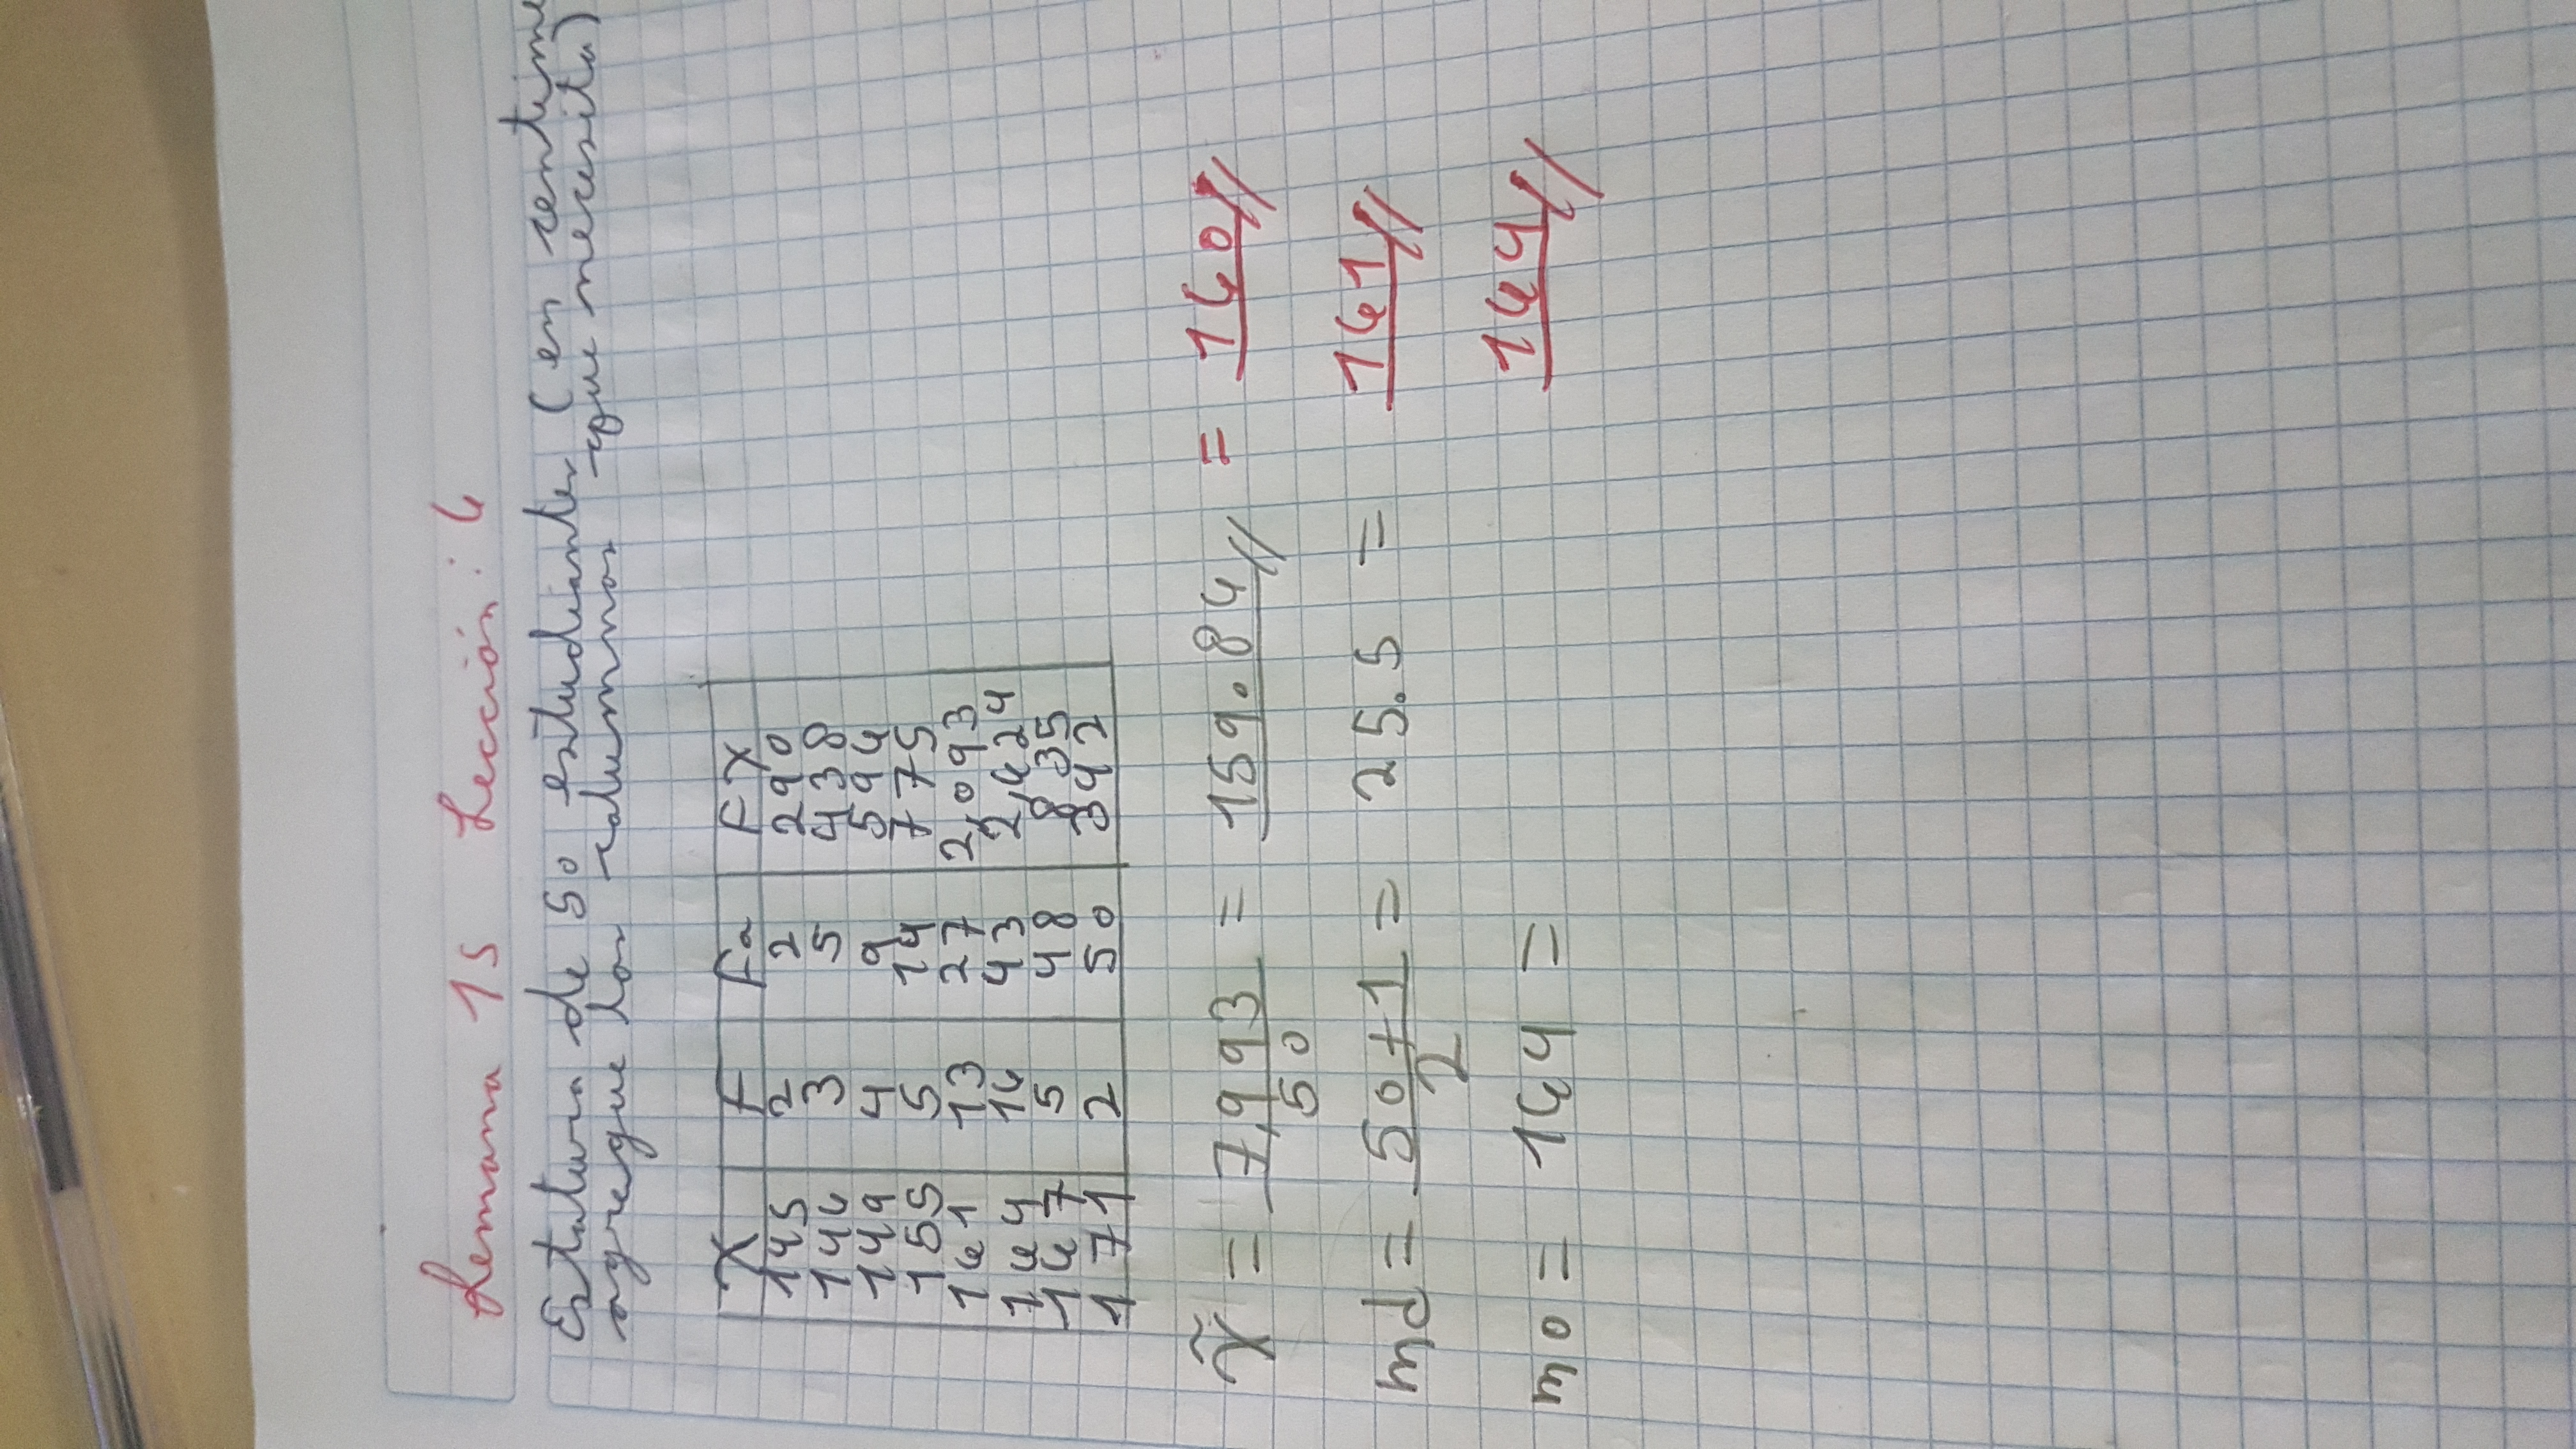 Semana 15 Lección: 6
Estatura de 50 estudiantes (en centíme
agregue las columnas que necesita)
X F Fa FX
145 2 2 290
146 3 5 438
149 4 9 596
155 5 14 775
161 13 27 2,093
164 16 43 2,624
167 5 48 835
171 2 50 342
x̃ = 7,993/50 = 159.84// = 160//
md = 50+1/2 = 25.5 = 161//
mo = 164 = 164//